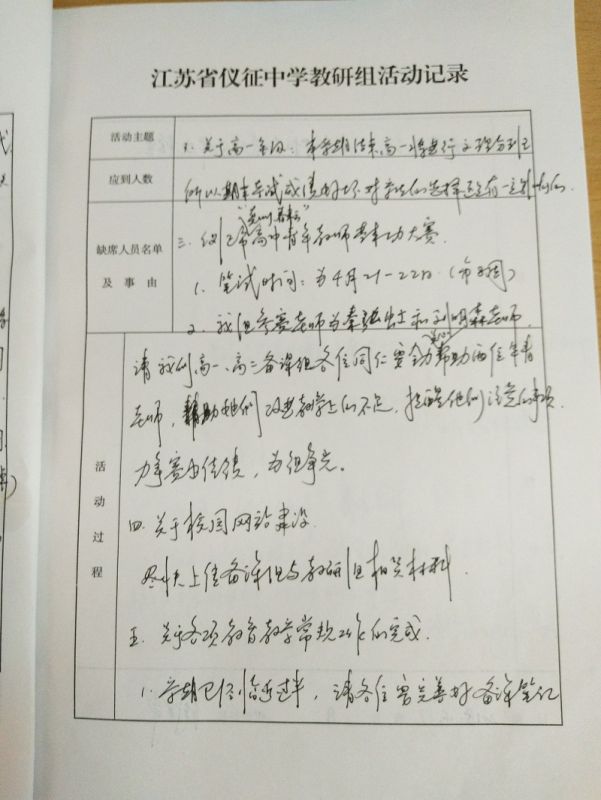 江苏省仪征中学教研组活动记录
活动主题
3. 关于高一年级：本学期结束高一将进行文理分班
应到人数
所以期末考试成绩好坏对学生们的选择是有一定影响的
缺席人员名单
及事由
三. 仪征市高中青年教师基本功大赛.
1. 笔试时间：为4月21-22日（第周）
2. 我组参赛老师为秦和刘明森老师.
活动过程
请我们高一、高二备课组各位同仁要全力帮助两位年青
老师，帮助她们改进教学上的不足，提醒他们注意的事项.
力争赛出佳绩，为组争光.
四. 关于校园网站建设.
尽快上传备课组与教研组相关材料.
五. 关于各项教育教学常规工作的完成.
1. 学期已经临近过半，请各位要完善好备课笔记